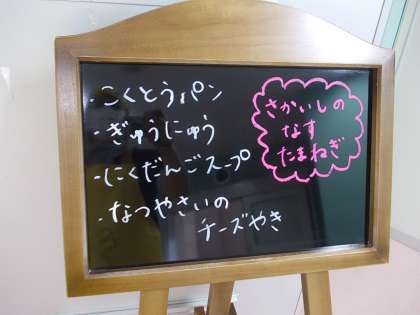 ・こくとうパン
・ぎゅうにゅう
・にくだんごスープ
・なつやさいの
チーズやき
さかいしの
なす
たまねぎ